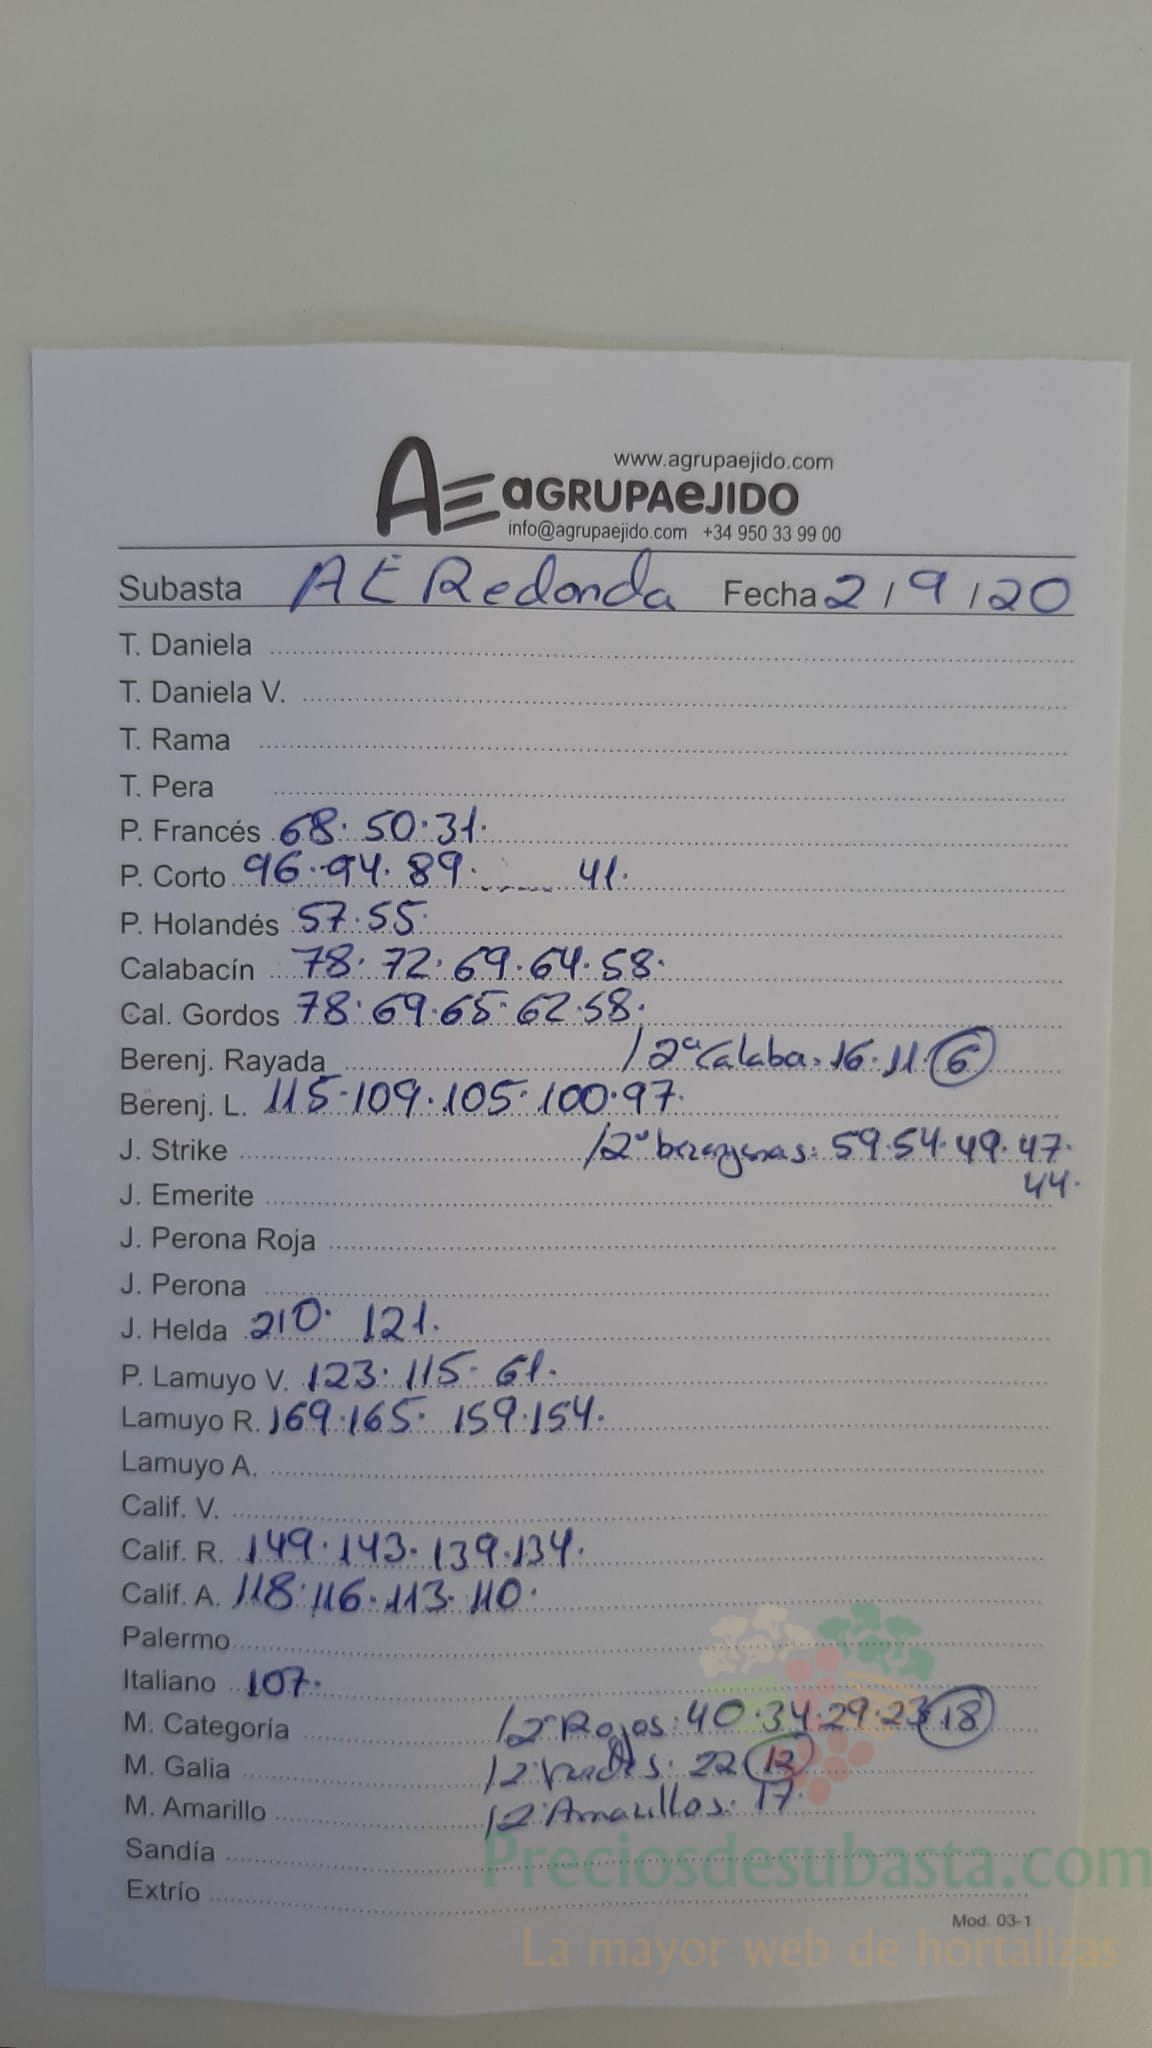 www.agrupaejido.com
AE aGRUPAeJIDO
info@agrupaejido.com +34 950 33 99 00
Subasta AE Redonda Fecha 2/9/20
T. Daniela
T. Daniela V.
T. Rama
T. Pera
P. Francés 68. 50. 31.
P. Corto 96. 94. 89. ...... 41.
P. Holandés 57. 55.
Calabacín 78. 72. 69. 64. 58.
Cal. Gordos 78. 69. 65. 62. 58.
Berenj. Rayada /2ª Calaba: 16. 11. 6
Berenj. L. 115. 109. 105. 100. 97.
J. Strike /2ª berenjenas: 59. 54. 49. 47.
44.
J. Emerite
J. Perona Roja
J. Perona
J. Helda 210. 121.
P. Lamuyo V. 123. 115. 61.
Lamuyo R. 169. 165. 159. 154.
Lamuyo A.
Calif. V.
Calif. R. 149. 143. 139. 134.
Calif. A. 118. 116. 113. 110.
Palermo
Italiano 107.
M. Categoría /2ª Rojos: 40. 34. 29. 23. 18
M. Galia /2ª Verdes: 22
M. Amarillo /2ª Amarillos: 17.
Sandía
Extrío
Mod. 03-1
Preciosdesubasta.com
La mayor web de hortalizas